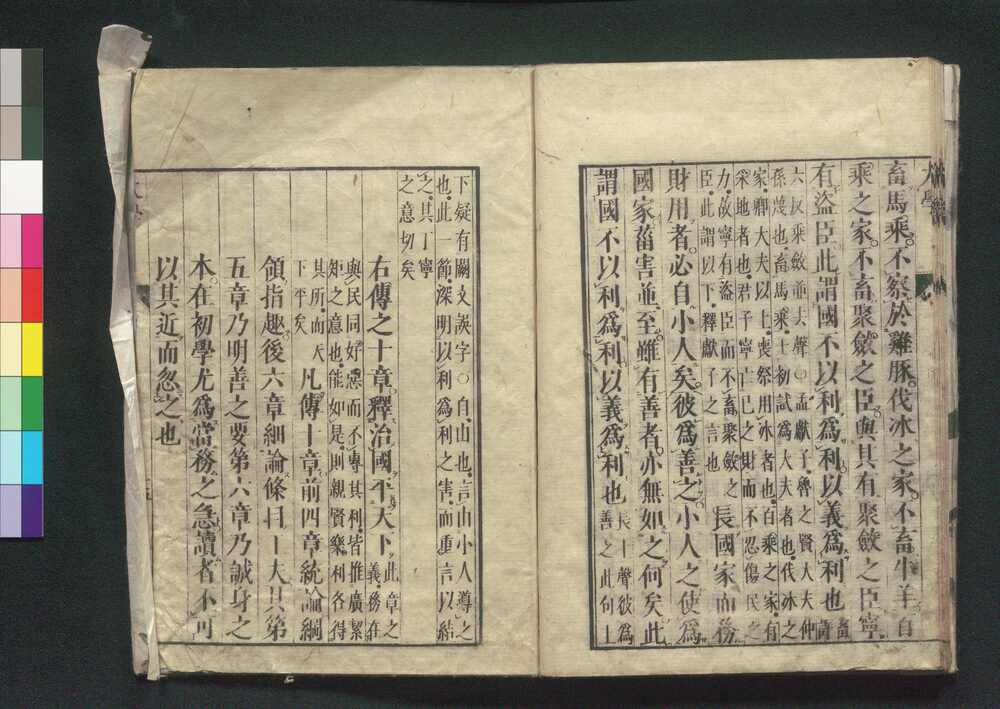 大學
畜馬乘。不察於雞豚。伐冰之家。不畜牛羊。百
乘之家。不畜聚斂之臣。與其有聚斂之臣。寧
有盜臣此謂國不以利爲利以義爲利也畜許
六反乘斂並去聲○孟獻子魯之賢大夫仲
孫蔑也畜馬乘士初試爲大夫者也伐冰之
家卿大夫以上喪祭用冰者也百乘之家有
采地者也君子寧亡己之財而不忍傷民之
力故寧有盜臣而不畜聚斂之
臣此謂以下釋獻子之言也
長國家而務
財用者。必自小人矣。彼爲善之。小人之使爲
國家。菑害並至。雖有善者。亦無如之何矣。此
謂國不以利爲利。以義爲利也
長上聲彼爲
善之此句上
下疑有闕文誤字○自由也言由小人導之
也此一節深明以利爲利之害而重言以結
之其丁寧
之意切矣
右傳之十章。釋治國平天下
此章之
義務在
與民同好惡而不專其利皆推廣絜
矩之意也能如是則親賢樂利各得
其所而天
下平矣
凡傳十章。前四章統論綱
領指趣。後六章細論條目工夫。其第
五章乃明善之要第六章乃誠身之
本。在初學尤爲當務之急讀者不可
以其近而忽之也